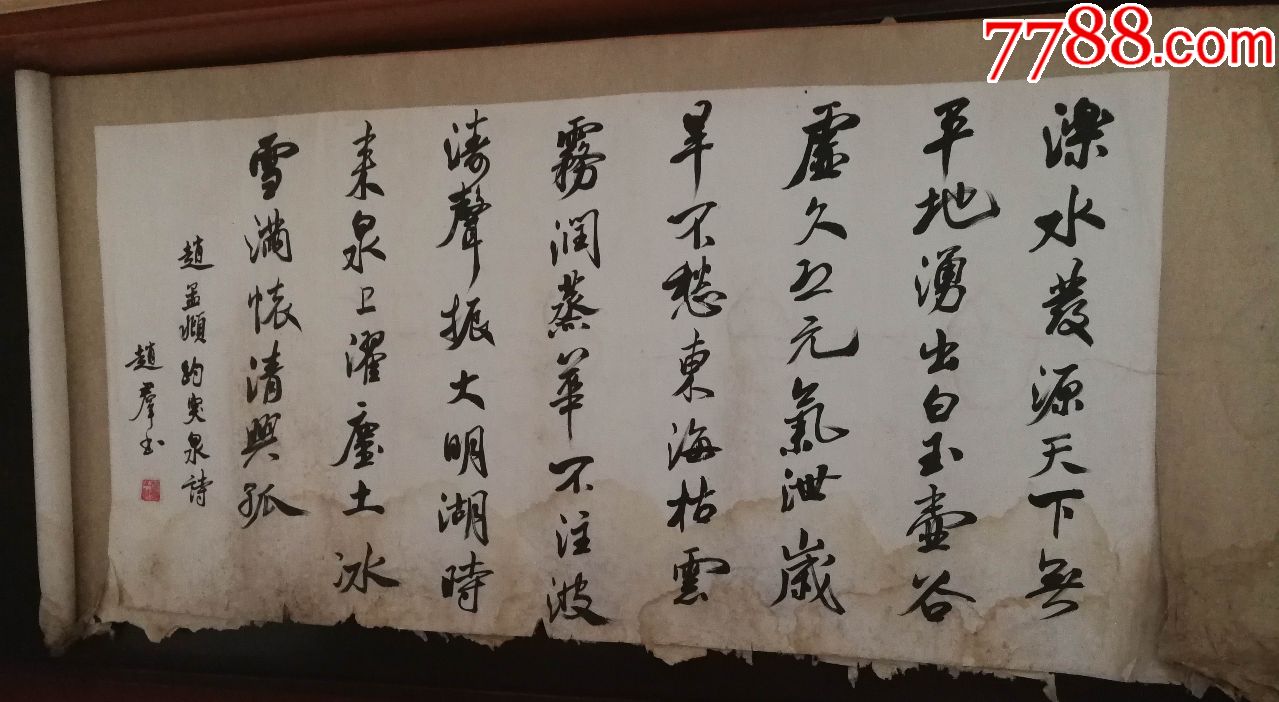 7788.com
濼水發源天下無
平地湧出白玉壺谷
虛久恐元氣泄歲
旱不愁東海枯雲
霧潤蒸華不注波
濤聲振大明湖時
來泉上濯塵土冰
雪滿懷清興孤
趙孟頫趵突泉詩
趙羣